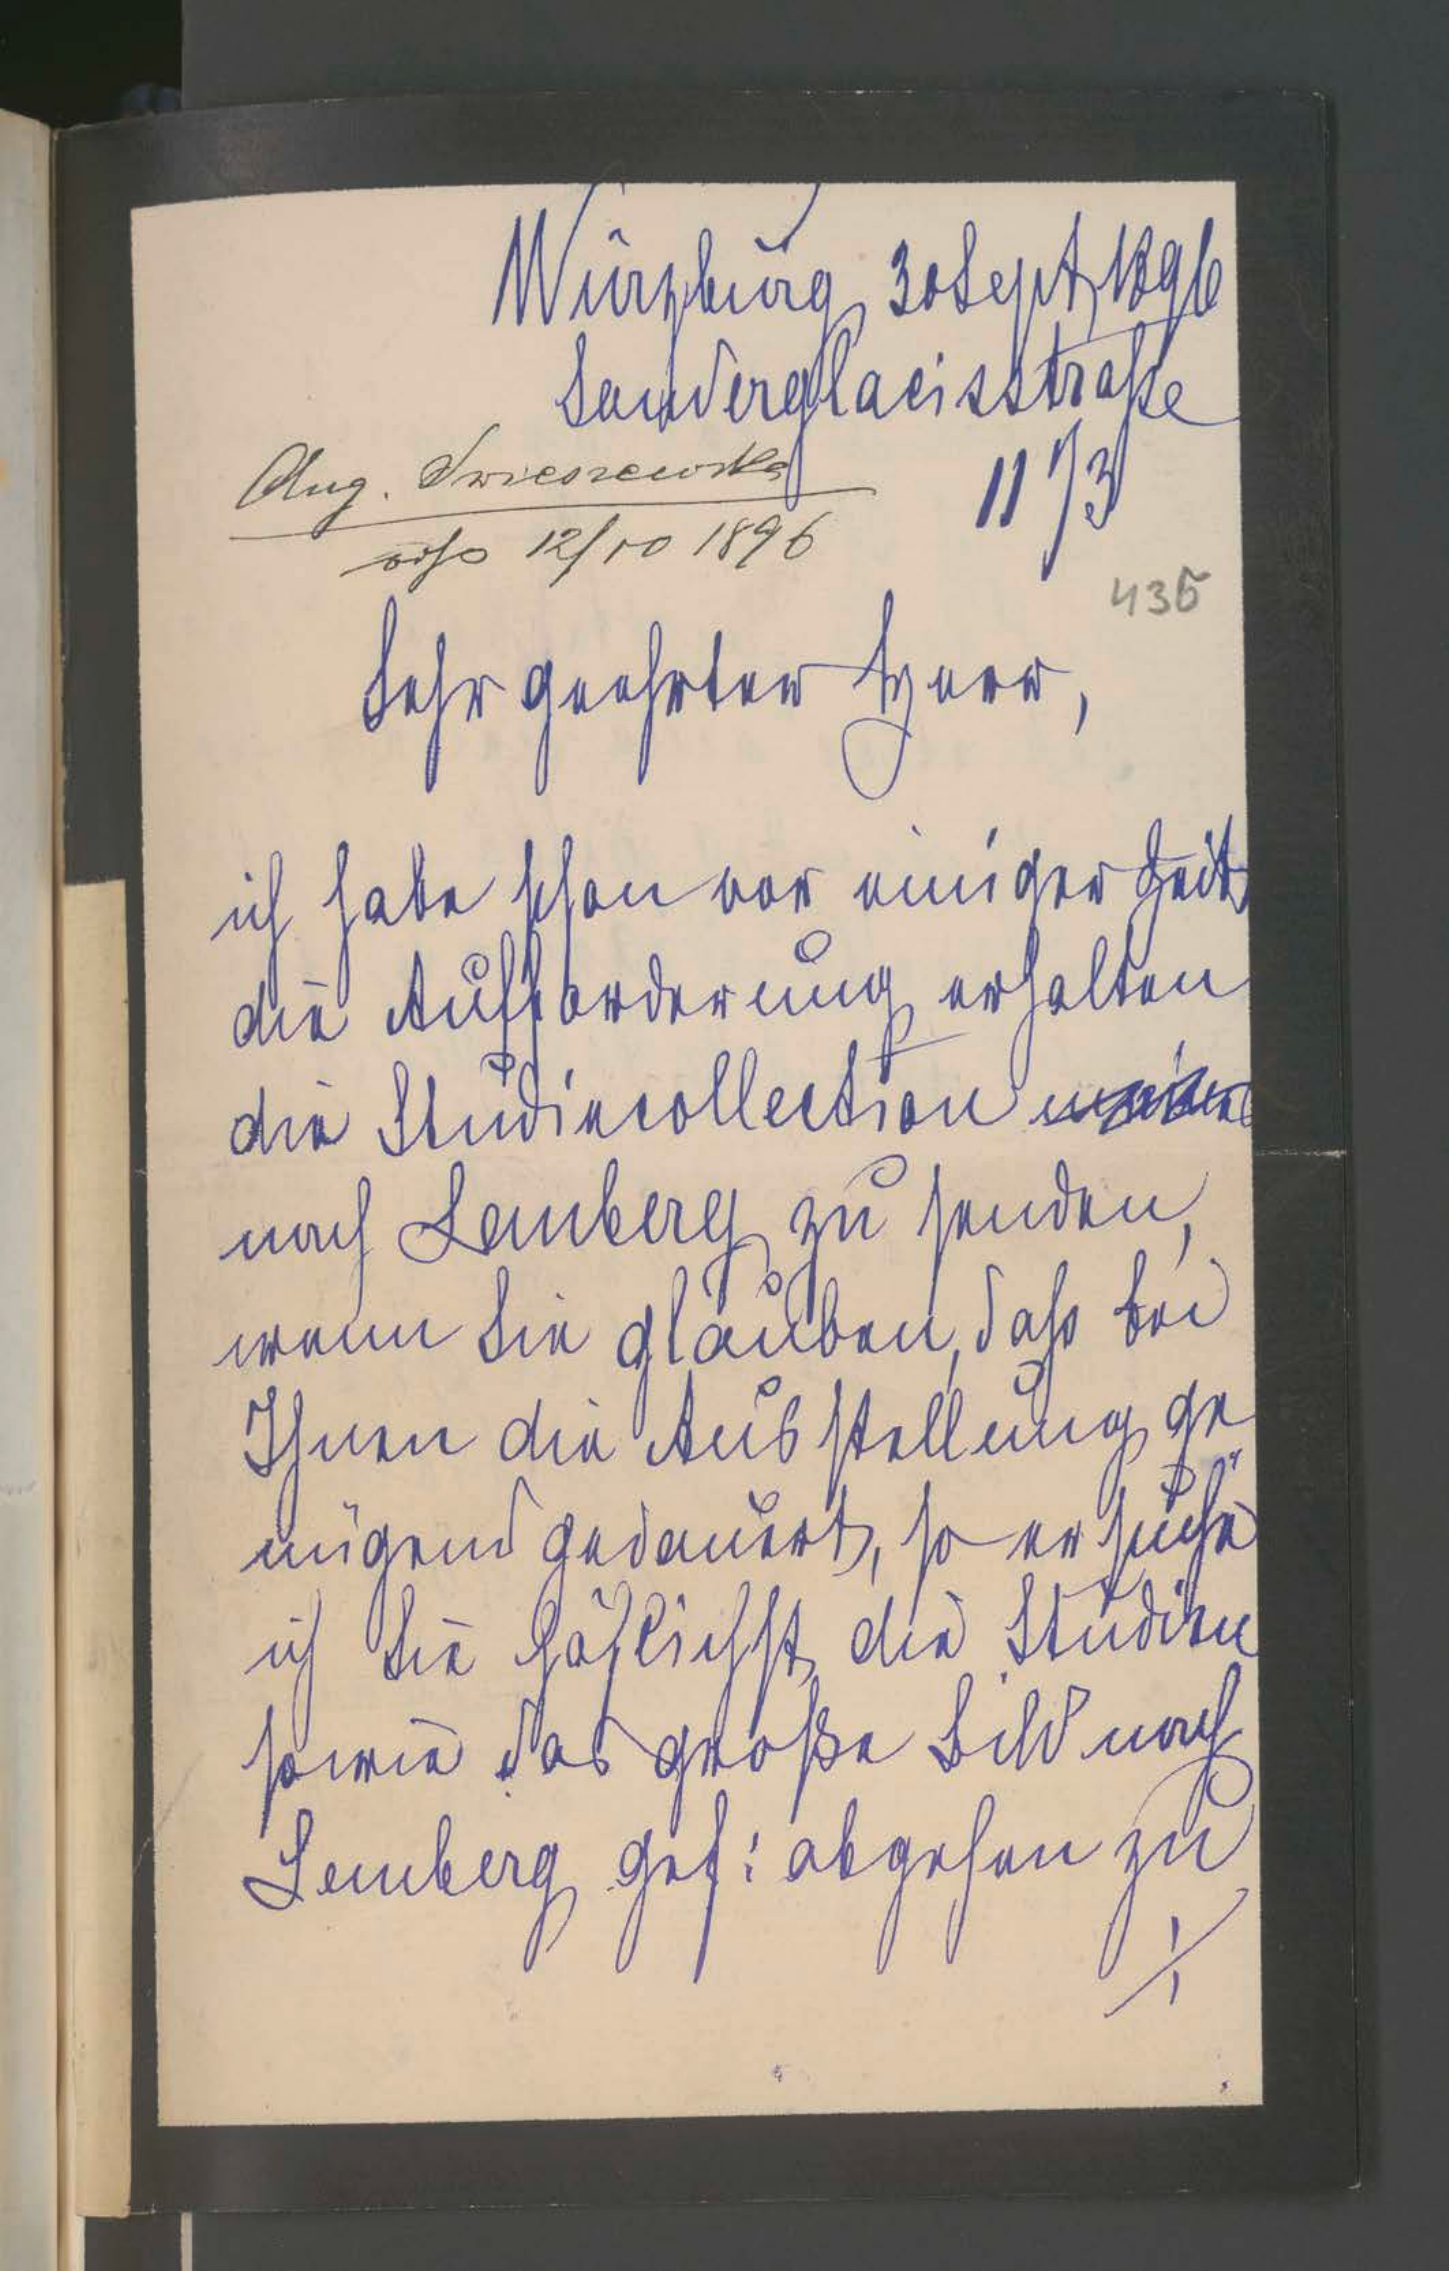 Würzburg, 30 Sept, 1896
Sanderglacisstraße
11 /3
Aug. Swieszewska
odp 12/10 1896
435
Sehr geehrter Herr,
ich habe schon vor einiger Zeit
die Aufforderung erhalten
die Studiecollection
nach Lemberg zu senden,
wenn Sie glauben, daß bei
Ihnen die Ausstellung ge
nügend gedauert, so ersuche
ich Sie höflichst die Studien
sowie das große Bild nach
Lemberg gef: abgehen zu